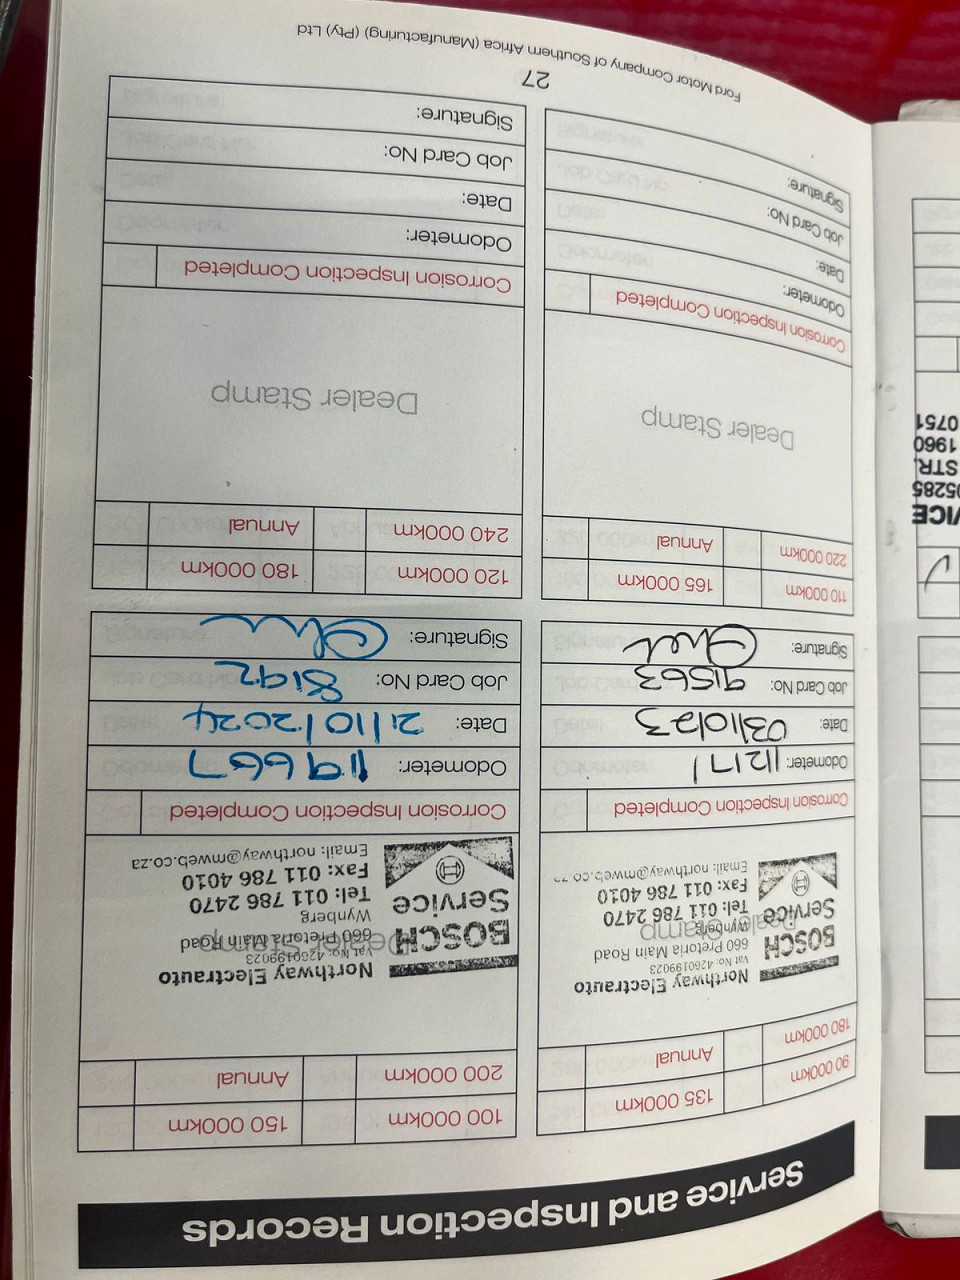 Service and Inspection Records
90 000km
135 000km
180 000km
Annual
Dealer Stamp
BOSCH
Service
Northway Electrauto
Vat No: 4260199023
660 Pretoria Main Road
Wynberg
Tel: 011 786 2470
Fax: 011 786 4010
Email: northway@mweb.co.za
Corrosion Inspection Completed
Odometer: 112171
Date: 03/10/23
Job Card No: 91563
Signature:
100 000km
150 000km
200 000km
Annual
Dealer Stamp
BOSCH
Service
Northway Electrauto
Vat No: 4260199023
660 Pretoria Main Road
Wynberg
Tel: 011 786 2470
Fax: 011 786 4010
Email: northway@mweb.co.za
Corrosion Inspection Completed
Odometer: 119667
Date: 21/10/2024
Job Card No: 8192
Signature:
110 000km
165 000km
220 000km
Annual
Dealer Stamp
Corrosion Inspection Completed
Odometer:
Date:
Job Card No:
Signature:
120 000km
180 000km
240 000km
Annual
Dealer Stamp
Corrosion Inspection Completed
Odometer:
Date:
Job Card No:
Signature:
27
Ford Motor Company of Southern Africa (Manufacturing) (Pty) Ltd
05285
STR.
1960
0751